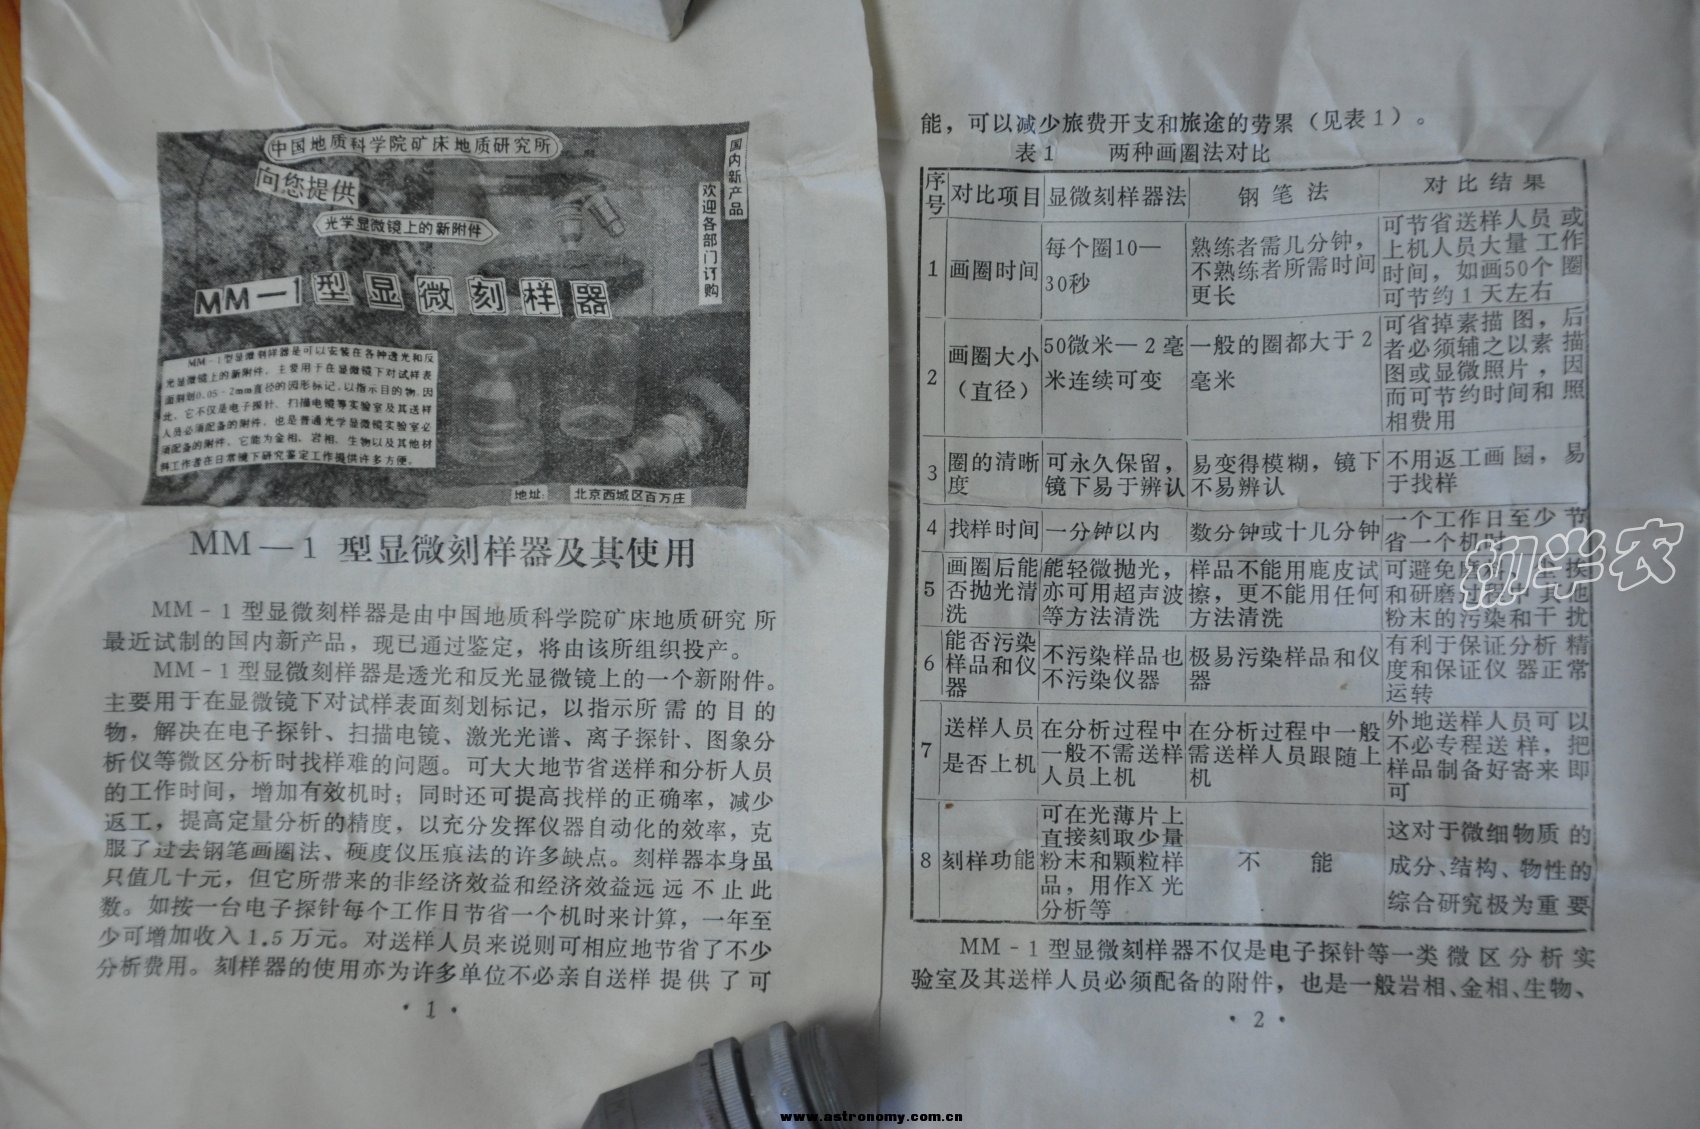 中国地质科学院矿床地质研究所
向您提供
光学显微镜上的新附件
国内新产品
欢迎各部门订购
MM—1型显微刻样器
MM—1型显微刻样器是可以安装在各种透光和反
光显微镜上的新附件．主要用于在显微镜下对试样表
面刻划0.05-2mm直径的园形标记，以指示目的物．因
此．它不仅是电子探针、扫描电镜等实验室及其送样
人员必须配备的附件．也是普通光学显微镜实验室必
须配备的附件．它能为金相、岩相、生物以及其他材
料工作者在日常镜下研究鉴定工作提供许多方便。
地址： 北京西城区百万庄
MM—1 型显微刻样器及其使用
MM-1型显微刻样器是由中国地质科学院矿床地质研究所
最近试制的国内新产品，现已通过鉴定，将由该所组织投产。
MM-1型显微刻样器是透光和反光显微镜上的一个新附件。
主要用于在显微镜下对试样表面刻划标记，以指示所需的目的
物，解决在电子探针、扫描电镜、激光光谱、离子探针、图象分
析仪等微区分析时找样难的问题。可大大地节省送样和分析人员
的工作时间，增加有效机时；同时还可提高找样的正确率，减少
返工，提高定量分析的精度，以充分发挥仪器自动化的效率，克
服了过去钢笔画圈法、硬度仪压痕法的许多缺点。刻样器本身虽
只值几十元，但它所带来的非经济效益和经济效益远远不止此
数。如按一台电子探针每个工作日节省一个机时来计算，一年至
少可增加收入1.5万元。对送样人员来说则可相应地节省了不少
分析费用。刻样器的使用亦为许多单位不必亲自送样提供了可
·1·
能，可以减少旅费开支和旅途的劳累（见表1）。
表1 两种画圈法对比
序号 对比项目 显微刻样器法 钢笔法 对比结果
1 画圈时间
每个圈10—
30秒
熟练者需几分钟，
不熟练者所需时间
更长
可节省送样人员或
上机人员大量工作
时间，如画50个圈
可节约1天左右
2
画圈大小
（直径）
50微米—2毫
米连续可变
一般的圈都大于2
毫米
可省掉素描图，后
者必须辅之以素描
图或显微照片，因
而可节约时间和照
相费用
3
圈的清晰
度
可永久保留，
镜下易于辨认
易变得模糊，镜下
不易辨认
不用返工画圈，易
于找样
4 找样时间 一分钟以内 数分钟或十几分钟
一个工作日至少节
省一个机时
5
画圈后能
否抛光清
洗
能轻微抛光，
亦可用超声波
等方法清洗
样品不能用鹿皮试
擦，更不能用任何
方法清洗
可避免
和研磨过程中其他
粉末的污染和干扰
6
能否污染
样品和仪
器
不污染样品也
不污染仪器
极易污染样品和仪
器
有利于保证分析精
度和保证仪器正常
运转
7
送样人员
是否上机
在分析过程中
一般不需送样
人员上机
在分析过程中一般
需送样人员跟随上
机
外地送样人员可以
不必专程送样，把
样品制备好寄来即
可
8 刻样功能
可在光薄片上
直接刻取少量
粉末和颗粒样
品，用作X光
分析等
不能
这对于微细物质的
成分、结构、物性的
综合研究极为重要
MM-1型显微刻样器不仅是电子探针等一类微区分析实
验室及其送样人员必须配备的附件，也是一般岩相、金相、生物、
·2·
柳半农
www.astronomy.com.cn